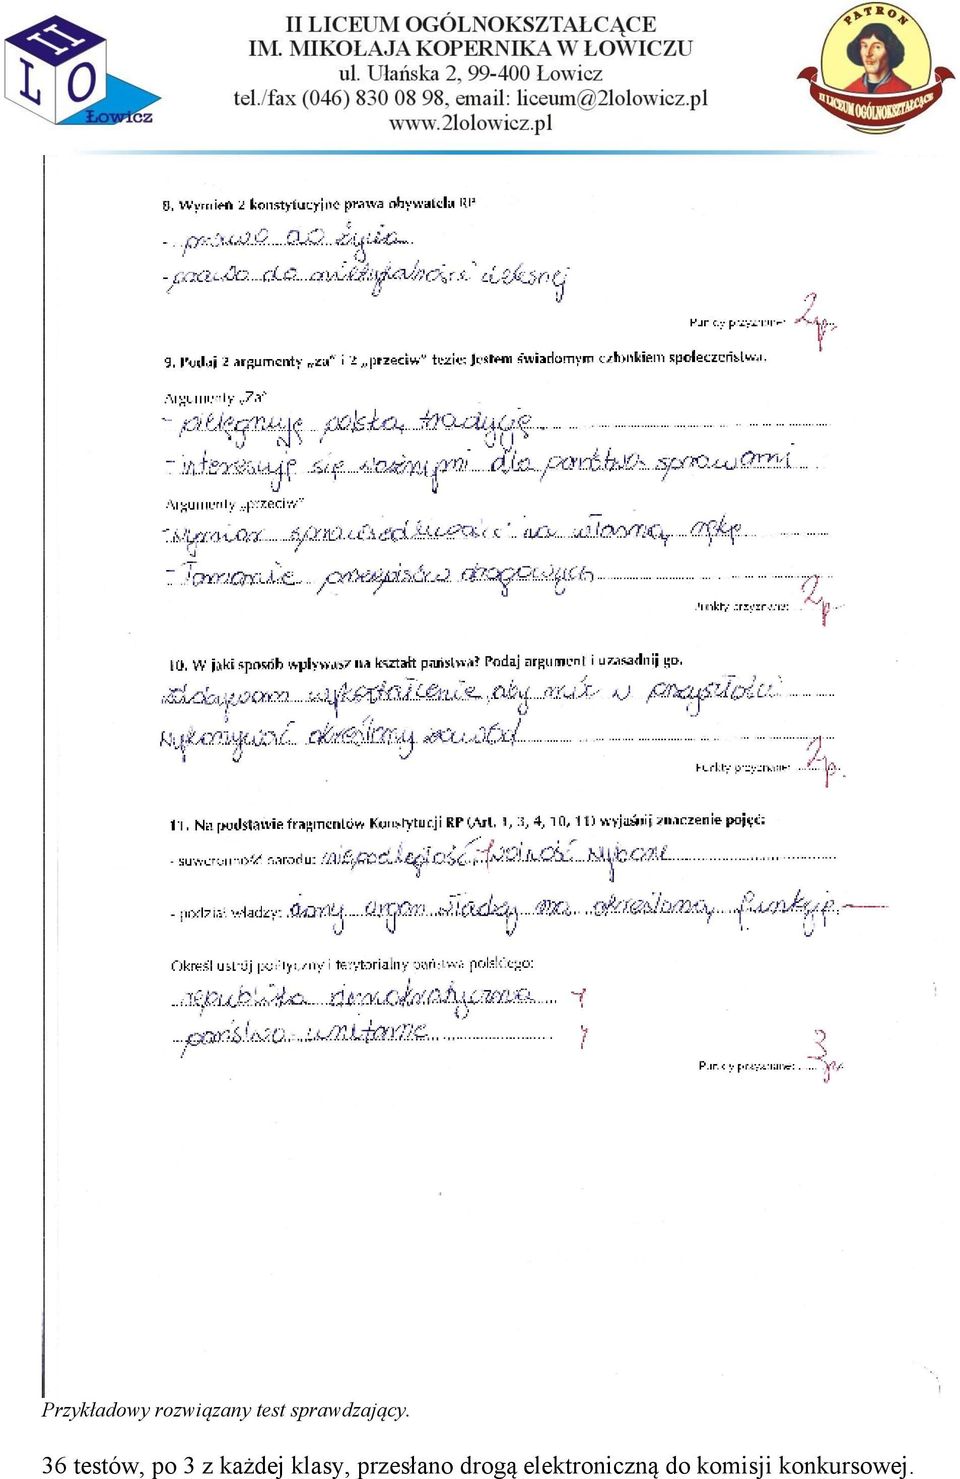 II LICEUM OGÓLNOKSZTAŁCĄCE
IM. MIKOŁAJA KOPERNIKA W ŁOWICZU
ul. Ułańska 2, 99-400 Łowicz
tel./fax (046) 830 08 98, email: liceum@2lolowicz.pl
www.2lolowicz.pl
II
L O
Łowicz
PATRON
II LICEUM OGÓLNOKSZTAŁCĄCE
8. Wymień 2 konstytucyjne prawa obywatela RP
- prawo do życia
- prawo do nietykalności cielesnej
Punkty przyznane: 2p.
9. Podaj 2 argumenty „za" i 2 „przeciw" tezie: Jestem świadomym członkiem społeczeństwa.
Argumenty „Za"
- pielęgnuję polską tradycję
- interesuję się ważnymi dla państwa sprawami
Argumenty „przeciw"
- wymiar sprawiedliwości na własną rękę
- łamanie przepisów drogowych
Punkty przyznane: 2p.
10. W jaki sposób wpływasz na kształt państwa? Podaj argument i uzasadnij go.
zdobywam wykształcenie, aby móc w przyszłości
wykonywać określony zawód
Punkty przyznane: 2p.
11. Na podstawie fragmentów Konstytucji RP (Art. 1, 3, 4, 10, 11) wyjaśnij znaczenie pojęć:
- suwerenność narodu: niepodległość, wolność
- podział władzy: dany organ władzy ma określoną funkcję
Określ ustrój polityczny i terytorialny państwa polskiego:
republika demokratyczna
państwo unitarne
Punkty przyznane: 3p.
Przykładowy rozwiązany test sprawdzający.
36 testów, po 3 z każdej klasy, przesłano drogą elektroniczną do komisji konkursowej.